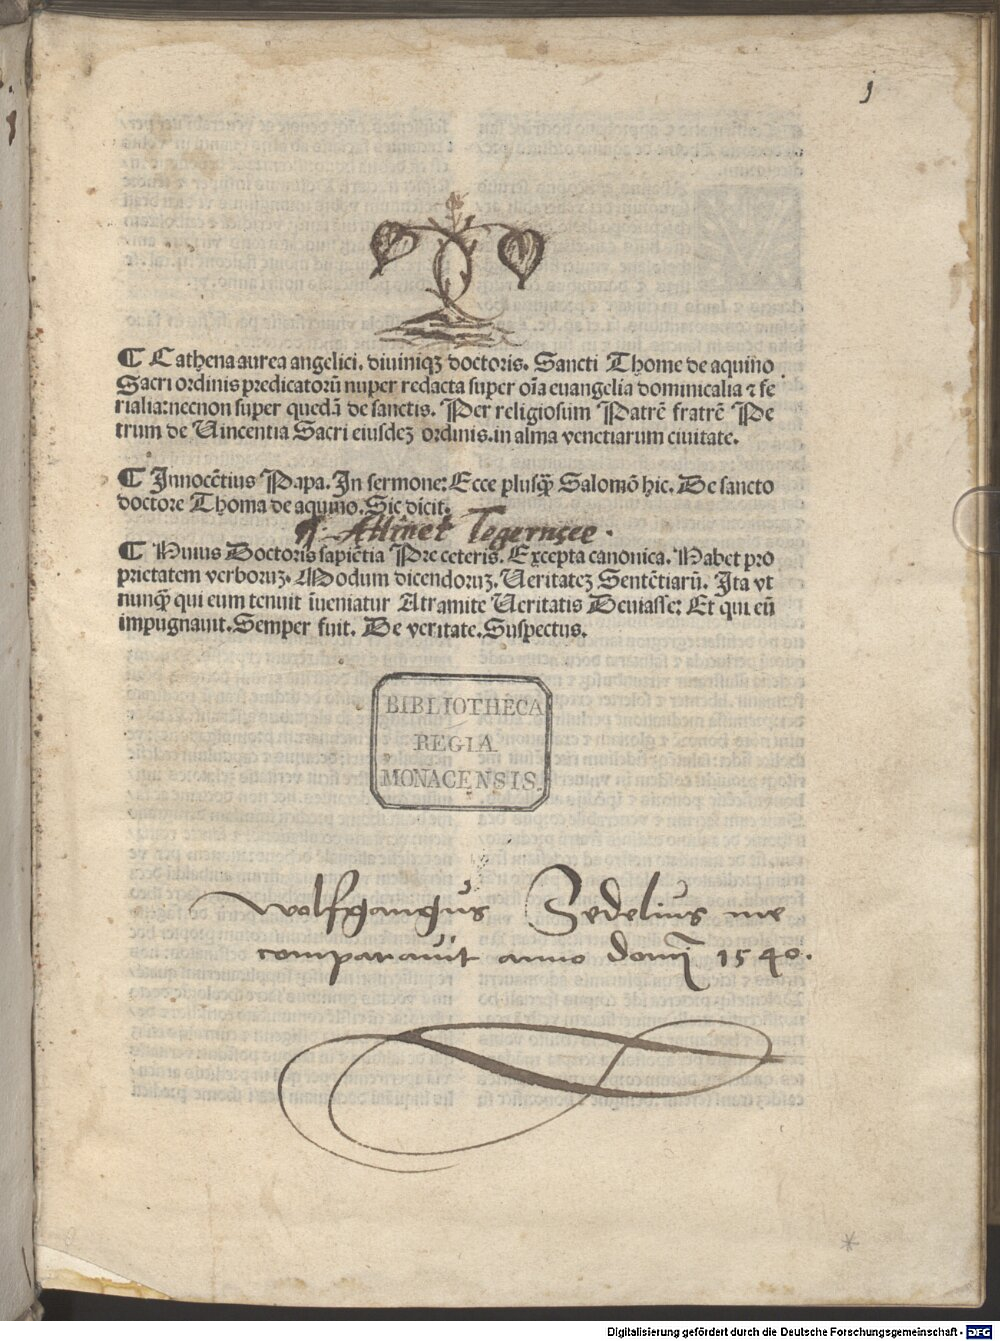 1
¶ Cathena aurea angelici. diuiniqꝫ doctoris. Sancti Thome de aquino
Sacri ordinis predicatorū nuper redacta super oı̄a euangelia dominicalia ⁊ fe
rialia: necnon super quedā de sanctis. Per religiosum Patrē fratrē Pe
trum de Uincentia Sacri eiusdeꝫ ordinis. in alma venetiarum ciuitate.
¶ Innocētius Papa. In sermone: Ecce plusꝗ̄ Salomō hic. De sancto
doctore Thoma de aquino. Sic dicit.
Attinet Tegernsee.
¶ Huius Doctoris sapiētia Pre ceteris. Excepta canonica. Habet pro
prietatem verboruꝫ. Modum dicendoruꝫ. Ueritateꝫ Sentētiarū. Ita vt
nunꝗ̄ qui eum tenuit īueniatur Atramite Ueritatis Deuiasse: Et qui eū
impugnauit. Semper fuit. De veritate. Suspectus.
BIBLIOTHECA
REGIA
MONACENSIS.
Wolfgangus Sedelius me
comparauit anno domı̄ 1540.
*
Digitalisierung gefördert durch die Deutsche Forschungsgemeinschaft - DFG